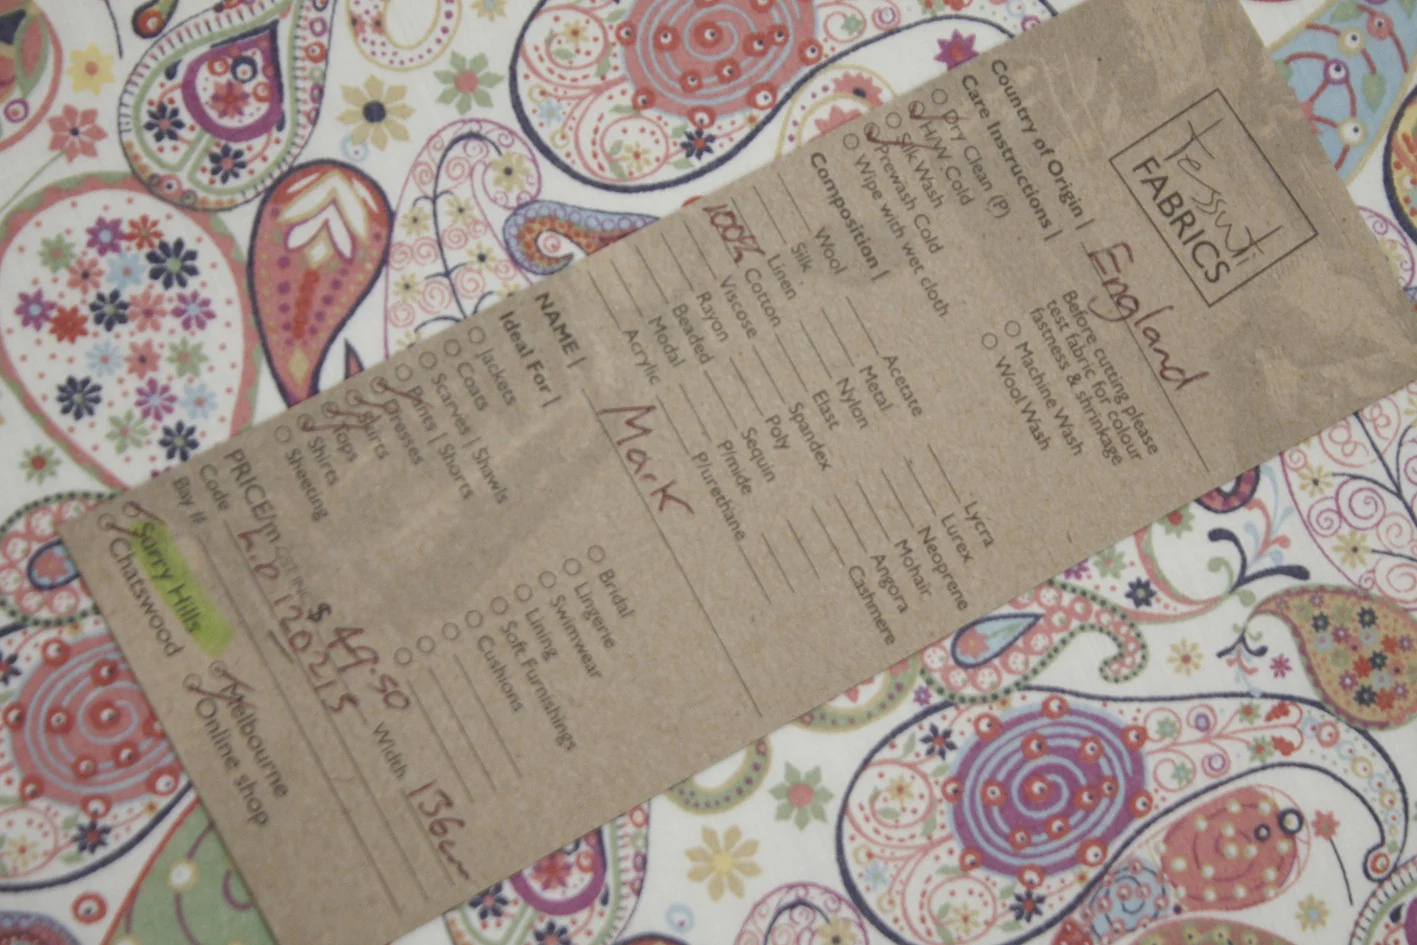 Tessuti
FABRICS
Country of Origin | England
Care Instructions |
Before cutting please
test fabric for colour
fastness & shrinkage
Dry Clean (P)
H/W Cold
Silk Wash
Prewash Cold
Wipe with wet cloth
Machine Wash
Wool Wash
Composition |
Wool
Silk
Linen
100% Cotton
Viscose
Rayon
Beaded
Modal
Acrylic
Acetate
Metal
Nylon
Elast
Spandex
Poly
Sequin
P/mide
P/urethane
Lycra
Lurex
Neoprene
Mohair
Angora
Cashmere
NAME | Mark
Ideal For |
Jackets
Coats
Scarves | Shawls
Pants | Shorts
Dresses
Skirts
Tops
Shirts
Sheeting
Bridal
Lingerie
Swimwear
Lining
Soft Furnishings
Cushions
PRICE/m GST INC $ 49.50 Width 136cm
Code 120215
Bay #
Surry Hills
Chatswood
Melbourne
Online shop